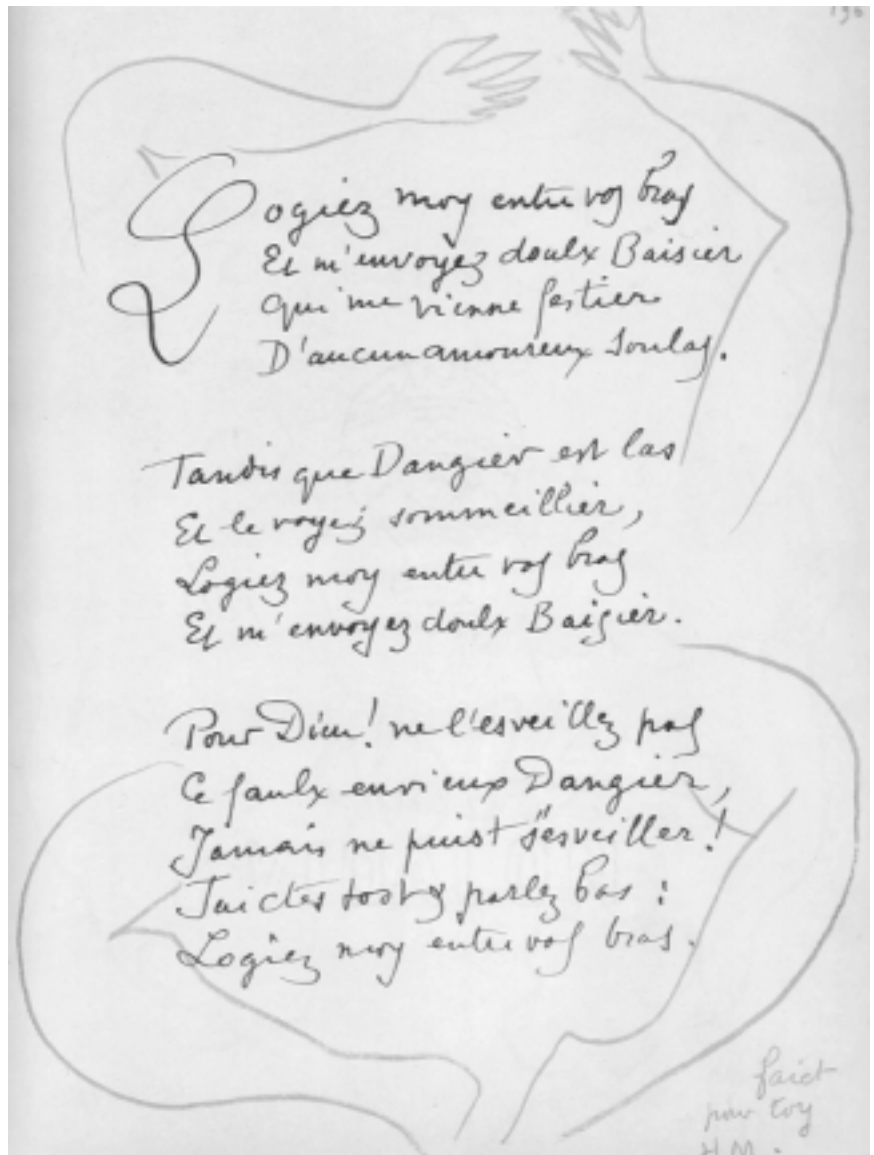 Logiez moy entre vos bras
Et m'envoyez doulx Baisier
Qui me vienne festier
D'aucun amoureux soulas.
Tandis que Dangier est las
Et le voyez sommeillier,
Logiez moy entre vos bras
Et m'envoyez doulx Baisier.
Pour Dieu! ne l'esveillez pas
Ce faulx envieux Dangier,
Jamais ne puist s'esveiller!
Faictes tost & parlez bas :
Logiez moy entre vos bras.
faict
pour toy
H.M.